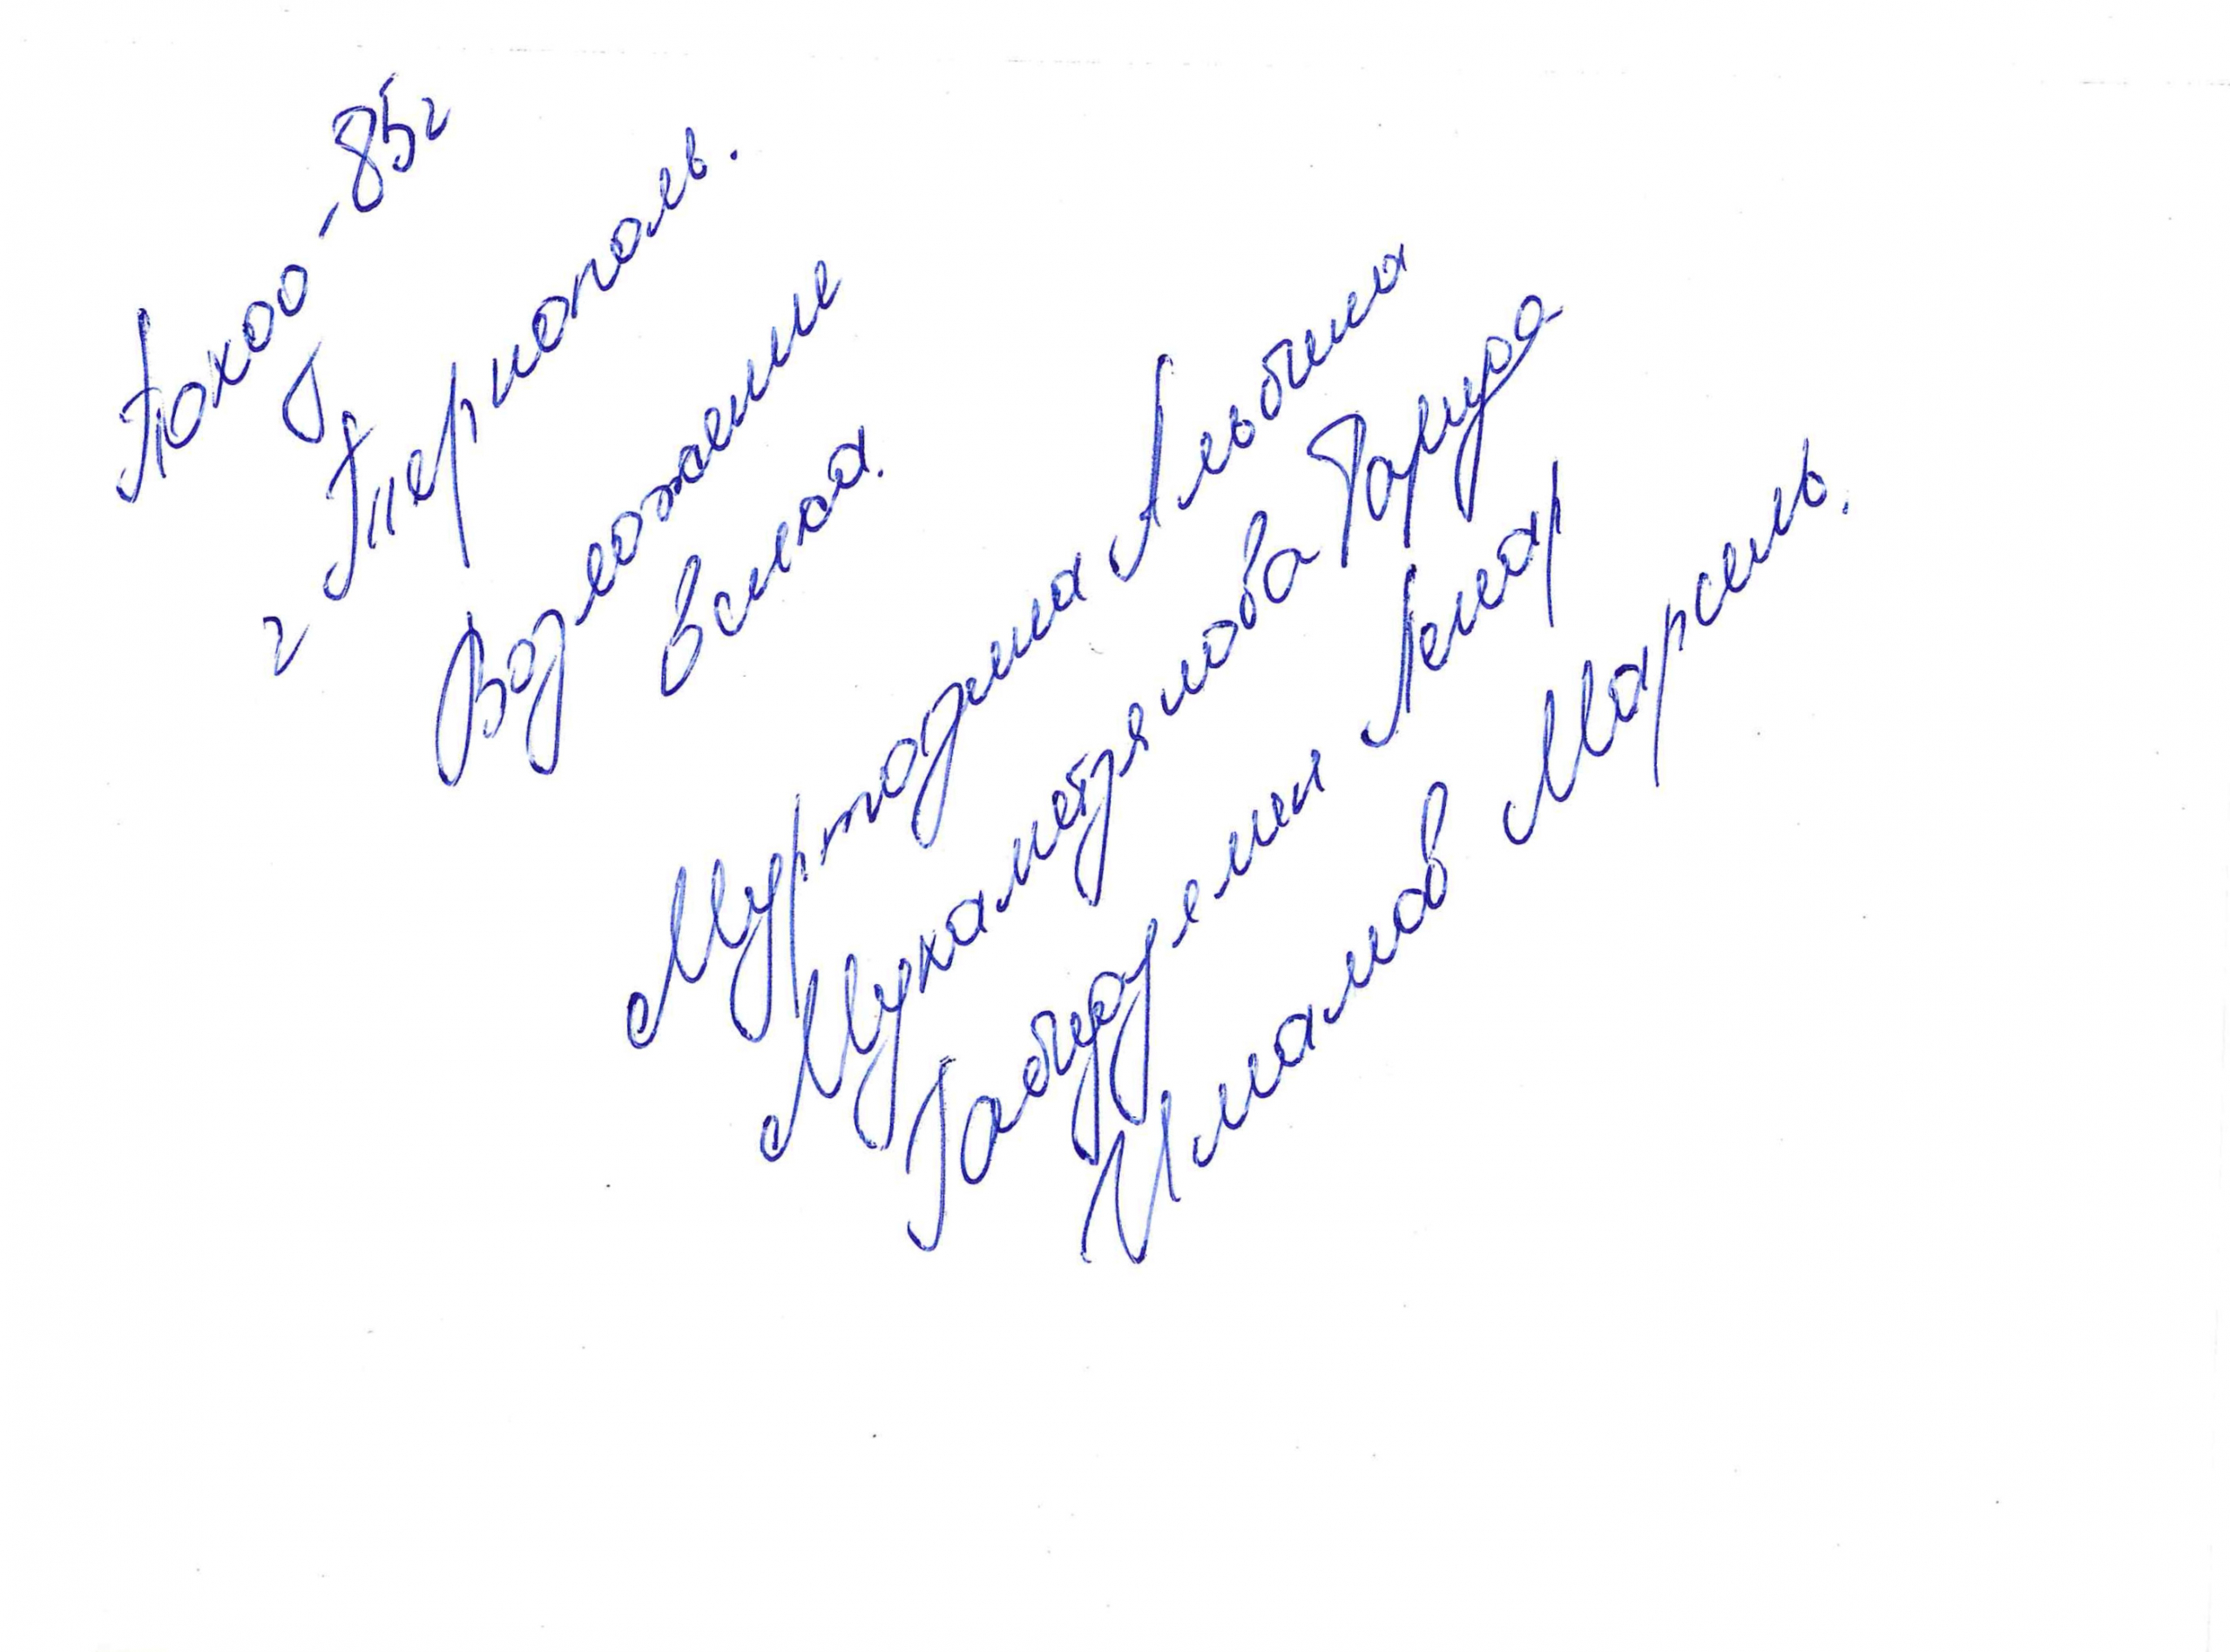 Поход -85г
г Тернополь.
Возложение
венка.
Муртазина Альбина
Мухаметзянова Фарида
Габдразяпин Ленар
Имамов Марсель.